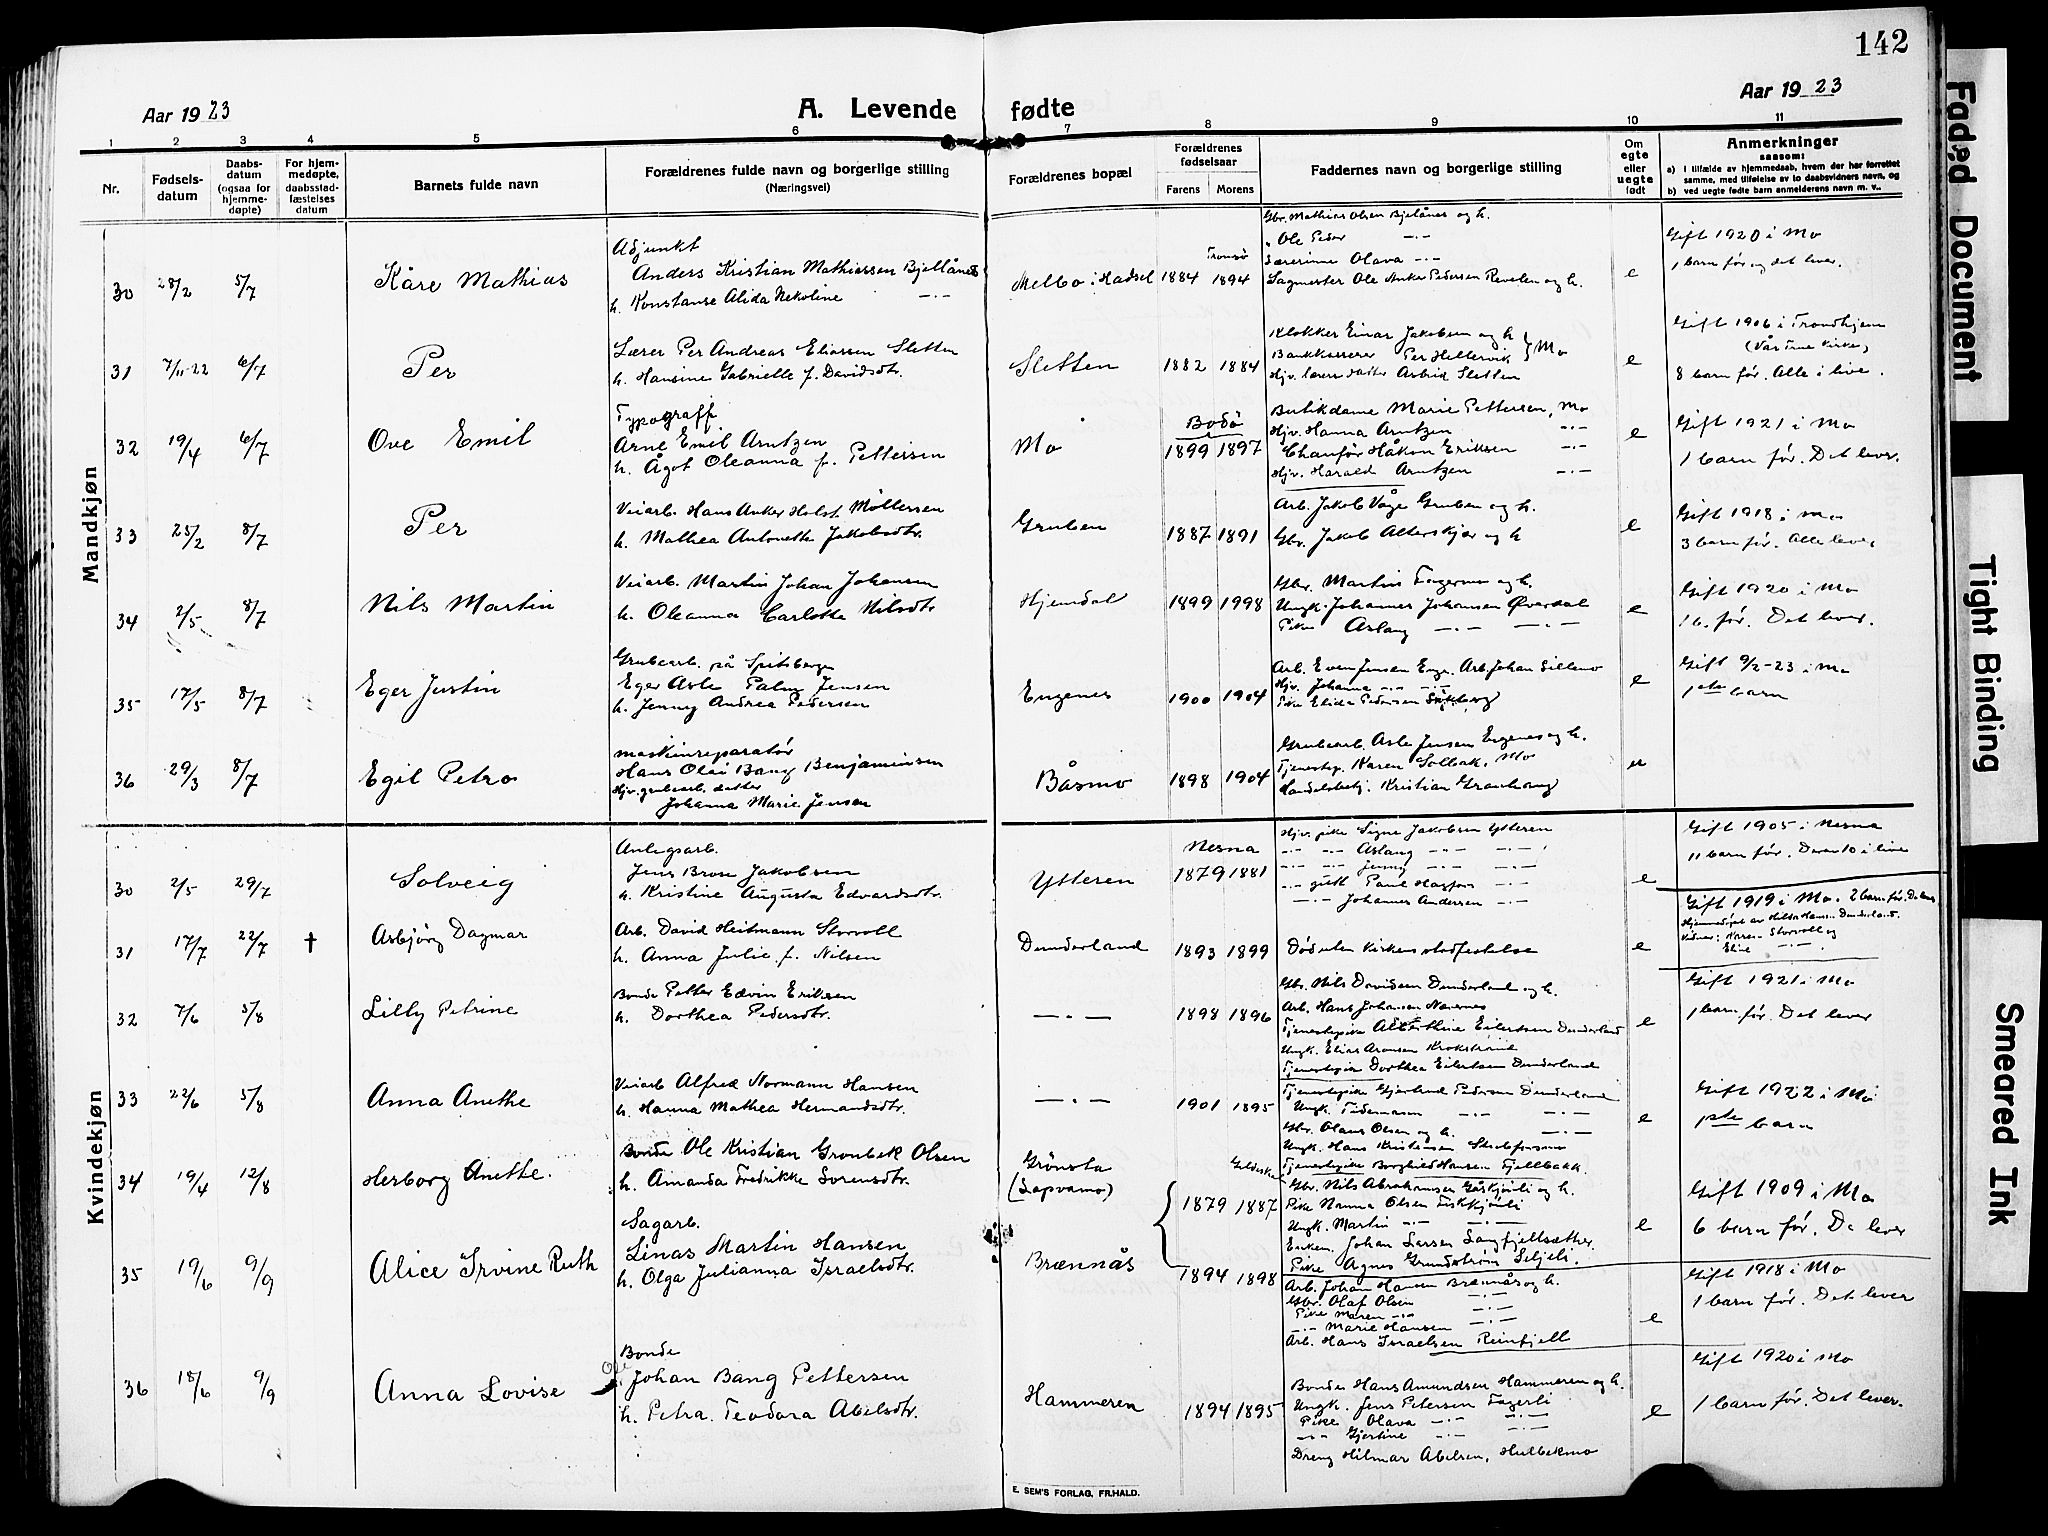 142
Aar 1923
A. Levende fødte
Aar 1923
1 2 3 4 5 6 7 8 9 10 11
Nr.
Fødselsdatum
Daabsdatum (ogsaa for hjemmedøpte)
For hjemmedøpte, daabsstadfæstelses datum
Barnets fulde navn
Forældrenes fulde navn og borgerlige stilling
(Næringsvei)
Forældrenes bopæl
Forældrenes fødselsaar
Farens Morens
Faddernes navn og borgerlige stilling
Om egte eller uegte født
Anmerkninger
saasom:
a) i tilfælde av hjemmedaab, hvem der har forrettet samme, med tilføielse av to daabsvidners navn, og
b) ved uegte fødte barn anmelderens navn m. v..
Mandkjøn
30 28/2 5/7 Kåre Mathias
Adjunkt
Anders Kristian Mathiassen Bjellånes
h. Konstanse Alida Nekoline —·—
Melbo i Hadsel
Tromsø
1884 1894
Gbr. Mathias Olsen Bjelånes og h.
„ Ole Peder —·—
Lærerinne Olava —·—
Sagmester Ole Anker Pedersen Revelen og h.
e
Gift 1920 i Mo
1 barn før og det lever.
31 7/11-22 6/7 Per
Lærer Per Andreas Eliassen Sletten
h. Hansine Gabrielle f. Davidsdtr.
Sletten
1882 1884
Klokker Einar Jakobsen og h
Bankkasserer Per Hellervik } Mo
Hjv. lærers datter Astrid Sletten
e
Gift 1906 i Trondhjem
(Vår Frue Kirke)
8 barn før. Alle i live.
32 19/4 6/7 Ove Emil
Typograff
Arne Emil Arntzen
h. Ågot Oleanna f. Pettersen
Mo
Bodø
1899 1897
Butikdame Marie Pettersen, Mo
Hjv. Hanna Arntzen —·—
Chauffør Håkon Eriksen —·—
Hjv. Harald Arntzen —·—
e
Gift 1921 i Mo
1 barn før. Det lever.
33 25/2 8/7 Per
Veiarb. Hans Anker Holst Møllersen
h. Mathea Antonette Jakobsdtr.
Gruben
1887 1891
Arb. Jakob Våge Gruben og h.
Gbr. Jakob Alterskjær og h
e
Gift 1918 i Mo
3 barn før. Alle lever.
34 2/5 8/7 Nils Martin
Veiarb. Martin Johan Johansen
h. Oleanna Carlotte Nilsdtr
Hjemdal
1899 1998
Gbr. Martin Fagermo og h.
Ungk. Johannes Johansen Øverdal
Pike Aslaug —·— —·—
e
Gift 1920 i Mo
1 b. før. Det lever.
35 17/5 8/7 Eger Justin
Grubearb. på Spitsbergen
Eger Asle Palmy Jensen
h. Jenny Andrea Pedersen
Engenes
1900 1904
Arb. Even Jensen Enge. Arb. Johan Sillemo
Hjv. Johanna —·— —·—
Pike Elida Pedersen
e
Gift 9/2-23 i Mo
1ste barn
36 29/3 8/7 Egil Petro
Maskinreparatør
Hans Olai Bang Benjaminsen
Hjv. grubearb. datter
Johanna Marie Jensen
Båsmo
1898 1904
Grubearb. Asle Jensen Engenes og h.
Tjenestep. Karen Solbak, Mo
Handelsbetj. Kristian Gravhaug
u
Kvindekjøn
30 2/5 29/7 Solveig
Anlegsarb.
Jens Brose Jakobsen
h. Kristine Augusta Edvardsdtr.
Ytteren
Nesna
1879 1881
Hjv. pike Signe Jakobsen Ytteren
—·— —·— Aslaug —·— —·—
—·— —·— Jenny —·— —·—
—·— gutt Paul —·—
—·— Johannes Andersen —·—
e
Gift 1905 i Nesna
11 barn før. Derav 10 i live
31 17/7 22/7 † Asbjørg Dagmar
Arb. David Heitmann Storvoll
h. Anna Julie f. Nilsen
Dunderland
1893 1899
Død uten kirkens stadfestelse
e
Gift 1919 i Mo. 2 barn før. De lever
Hjemmedøpt av Hilda Hansen Dunderland.
Vidner: Karen Storvoll og
Eline —·—.
32 7/6 5/8 Lilly Petrine
Bonde Petter Edvin Eriksen
h. Dorthea Pedersdtr.
—·—
1898 1896
Gbr. Nils Davidsen Dunderland og h.
Arb. Hans Johansen Nævernes
Tjenestepike Albertine Eilertsen Dunderland
Ungk. Elias Aronsen Krokstrand
Tjenestepike Dorthea Eilertsen Dunderland
e
Gift 1921 i Mo
1 barn før. Det lever
33 22/6 5/8 Anna Anethe
Veiarb Alfred Normann Hansen
h. Hanna Mathea Hermandsdtr.
—·—
1901 1895
Tjenestepike Gjerland Pedersen Dunderland
Ungk. Fredemann —·— —·—
Gbr. Olaus Olsen og h. —·—
Ungk. Hans Kristensen Storforsmo
Tjenestepike Borghild Hansen Fjellbakk.
e
Gift 1922 i Mo
1ste barn
34 19/4 12/8 Herborg Anethe.
Bonde Ole Kristian Grønbek Olsen
h. Amanda Fredrikke Sørensdtr.
Grønsta
(Lapvamo)
Gildeskål
1879 1887
Gbr. Nils Abrahamsen Gåskjønli og h.
Pike Nanna Olsen Fiskkjønli
Ungk. Martin —·— —·—
Enkem. Johan Larsen Langfjellsæther
Pike Agnes Grundstrøm Seljeli.
e
Gift 1909 i Mo
6 barn før. De lever
35 19/6 9/9 Alice Irvine Ruth
Sagarb.
Linas Martin Hansen
h. Olga Julianna Israelsdtr.
Brænnås
1894 1898
Arb. Johan Hansen Brænnås og h.
Gbr. Olaf Olsen —·—
Pike Maren —·— —·—
—·— Marie Hansen —·—
Arb. Hans Israelsen Reinfjell
e
Gift 1918 i Mo
1 barn før. Det lever
36 18/6 9/9 Anna Lovise
Bonde
Ole Johan Bang Pettersen
h. Petra Teodora Abelsdtr.
Hammeren
1894 1895
Bonde Hans Amundsen Hammeren og h.
Ungk. Jens Petersen Fagerli
Pike Olava —·— —·—
—·— Gjertine —·— —·—
Dreng Hilmar Abelsen, Hulbekmo
e
Gift 1920 i Mo
1 barn før. Det lever.
E. SEM'S FORLAG, FR.HALD.
Faded Document
Tight Binding
Smeared Ink